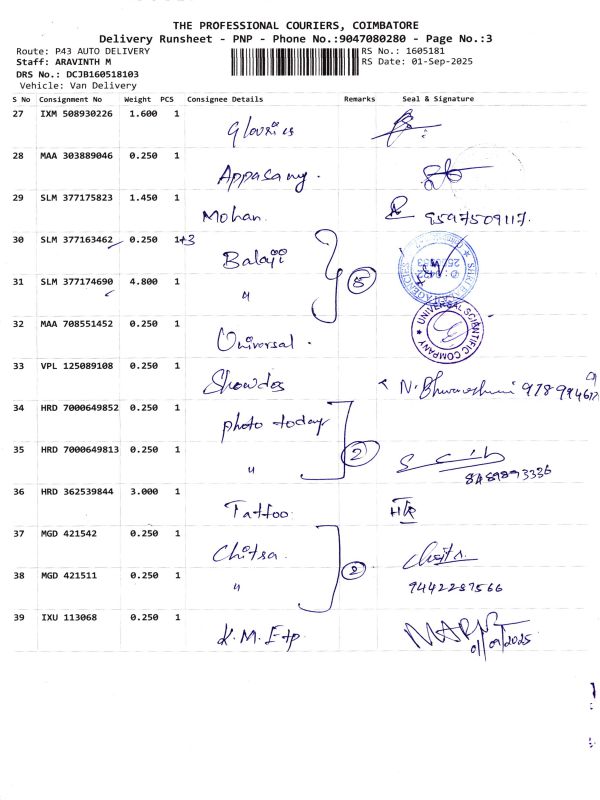 THE PROFESSIONAL COURIERS, COIMBATORE
Delivery Runsheet - PNP - Phone No.:9047080280 - Page No.:3
Route: P43 AUTO DELIVERY
Staff: ARAVINTH M
DRS No.: DCJB160518103
Vehicle: Van Delivery
RS No.: 1605181
RS Date: 01-Sep-2025
S No Consignment No Weight PCS Consignee Details Remarks Seal & Signature
27 IXM 508930226 1.600 1
28 MAA 303889046 0.250 1 Appasamy.
29 SLM 377175823 1.450 1 Mohan. 9597509117.
30 SLM 377163462 0.250 1+3 Balaji
31 SLM 377174690 4.800 1 " 5
32 MAA 708551452 0.250 1 Universal. UNIVERSAL SCIENTIFIC COMPANY
33 VPL 125089108 0.250 1
34 HRD 7000649852 0.250 1 photo today
35 HRD 7000649813 0.250 1 " 2
36 HRD 362539844 3.000 1 Tattoo.
37 MGD 421542 0.250 1 Chitsa.
38 MGD 421511 0.250 1 " 2
39 IXU 113068 0.250 1 K.M. 01/09/2025